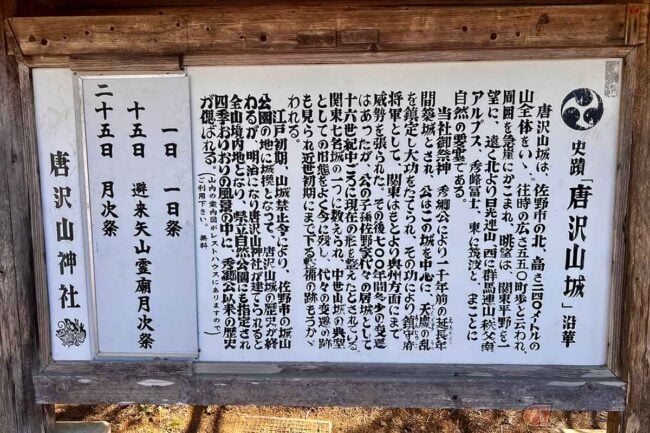 史蹟「唐沢山城」沿革
唐沢山城は、佐野市の北、高さ二四〇メートルの
山全体をいい、往時の広さ五五〇町歩と云われ、
周囲を急崖にかこまれ、眺望は、関東平野を一
望に、遠く北より日光連山、西に群馬連山、秩父、南
アルプス、秀峰富士、東に筑波と、まことに
自然の要害である。
当社御祭神 秀郷公により一千年前の延長年
間築城とされ、公はこの城を中心に、天慶の乱
を鎮定し大功をたてられ、その功により鎮守府
将軍として、関東はもとより奥州方面にまで
威勢を張られた。その後七〇〇年間多少の変遷
はあったが、公の子孫佐野家代々の居城として
十六世紀中ごろ現在の形を整えたとされている。
関東七名城の一つに数えられ、中世山城の典型
としての旧態をよく今に残し、代々の変遷の跡
も見られ近世初期にまで下る戦橋の跡もうかゞ
われる。
江戸初期、山城禁止令により、佐野市の城山
公園の地に城換となって、唐沢山城の歴史が終
わるが、明治になり唐沢山神社が建てられると
全山境内地となり、県立自然公園にも指定され
四季おりおりの風景の中に、秀郷公以来の歴史
が偲ばれる。
(山内の案内図がレストハウスにありますので
ご利用下さい。 無料)
一日 一日祭
十五日 避来矢山霊廟月次祭
二十五日 月次祭
唐沢山神社